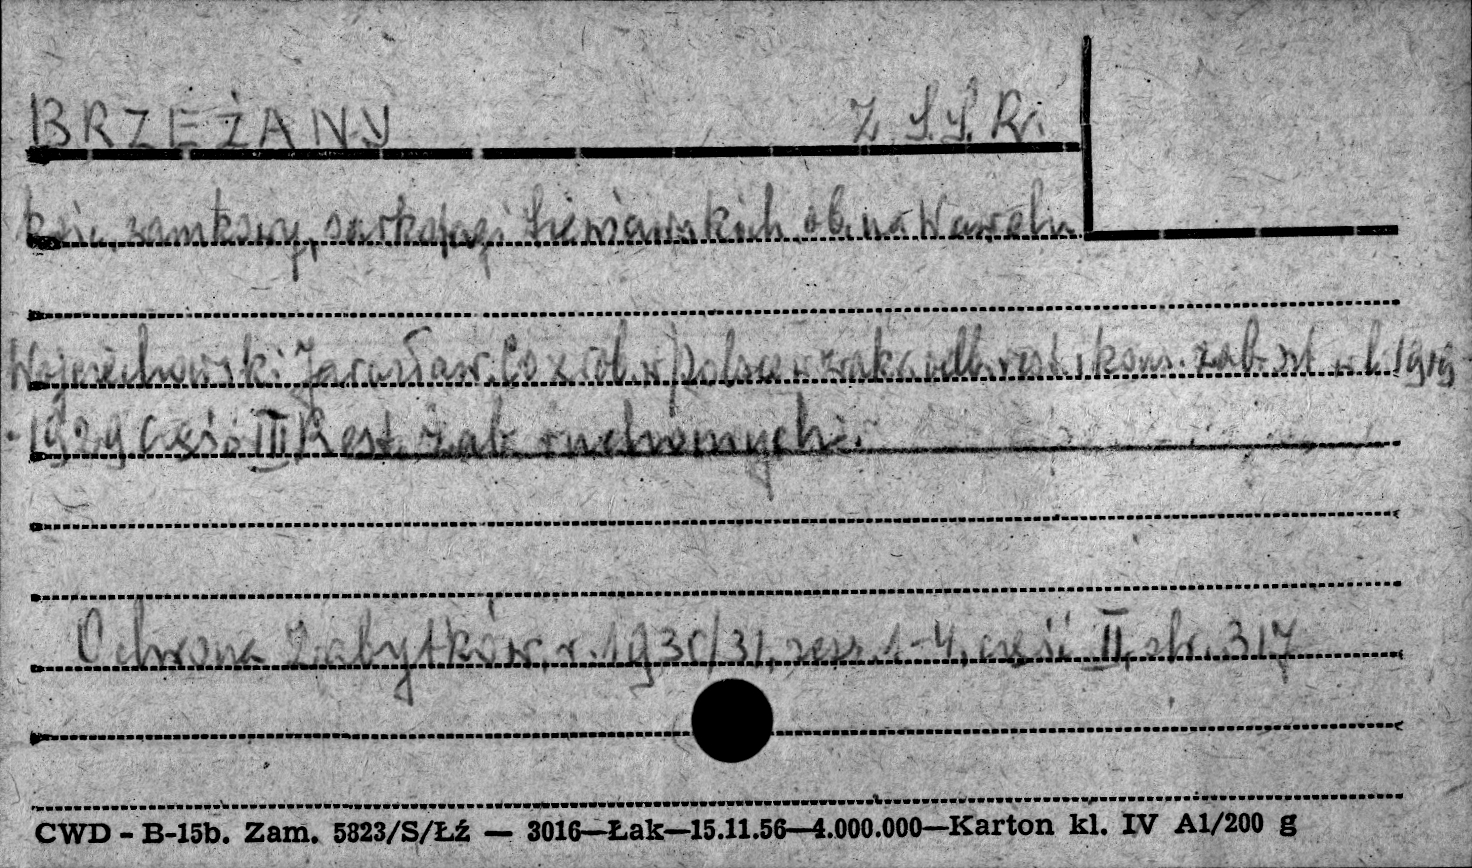 BRZEŻANY Z.S.S.R.
kośc. zamkowy, sarkofagi Sieniawskich ob. na Wawelu
Wojciechowski Jarosław. Co zrob. w Polsce w zakr. odb. rest. i kons. zab. szt. w l. 1919
-1929 Część III Rest. zab. ruchomych.
Ochrona Zabytków, r. 1930/31, zesz. 1-4, część II, str. 317
CWD - B-15b. Zam. 5823/S/Łź — 3016—Łak—15.11.56—4.000.000—Karton kl. IV A1/200 g